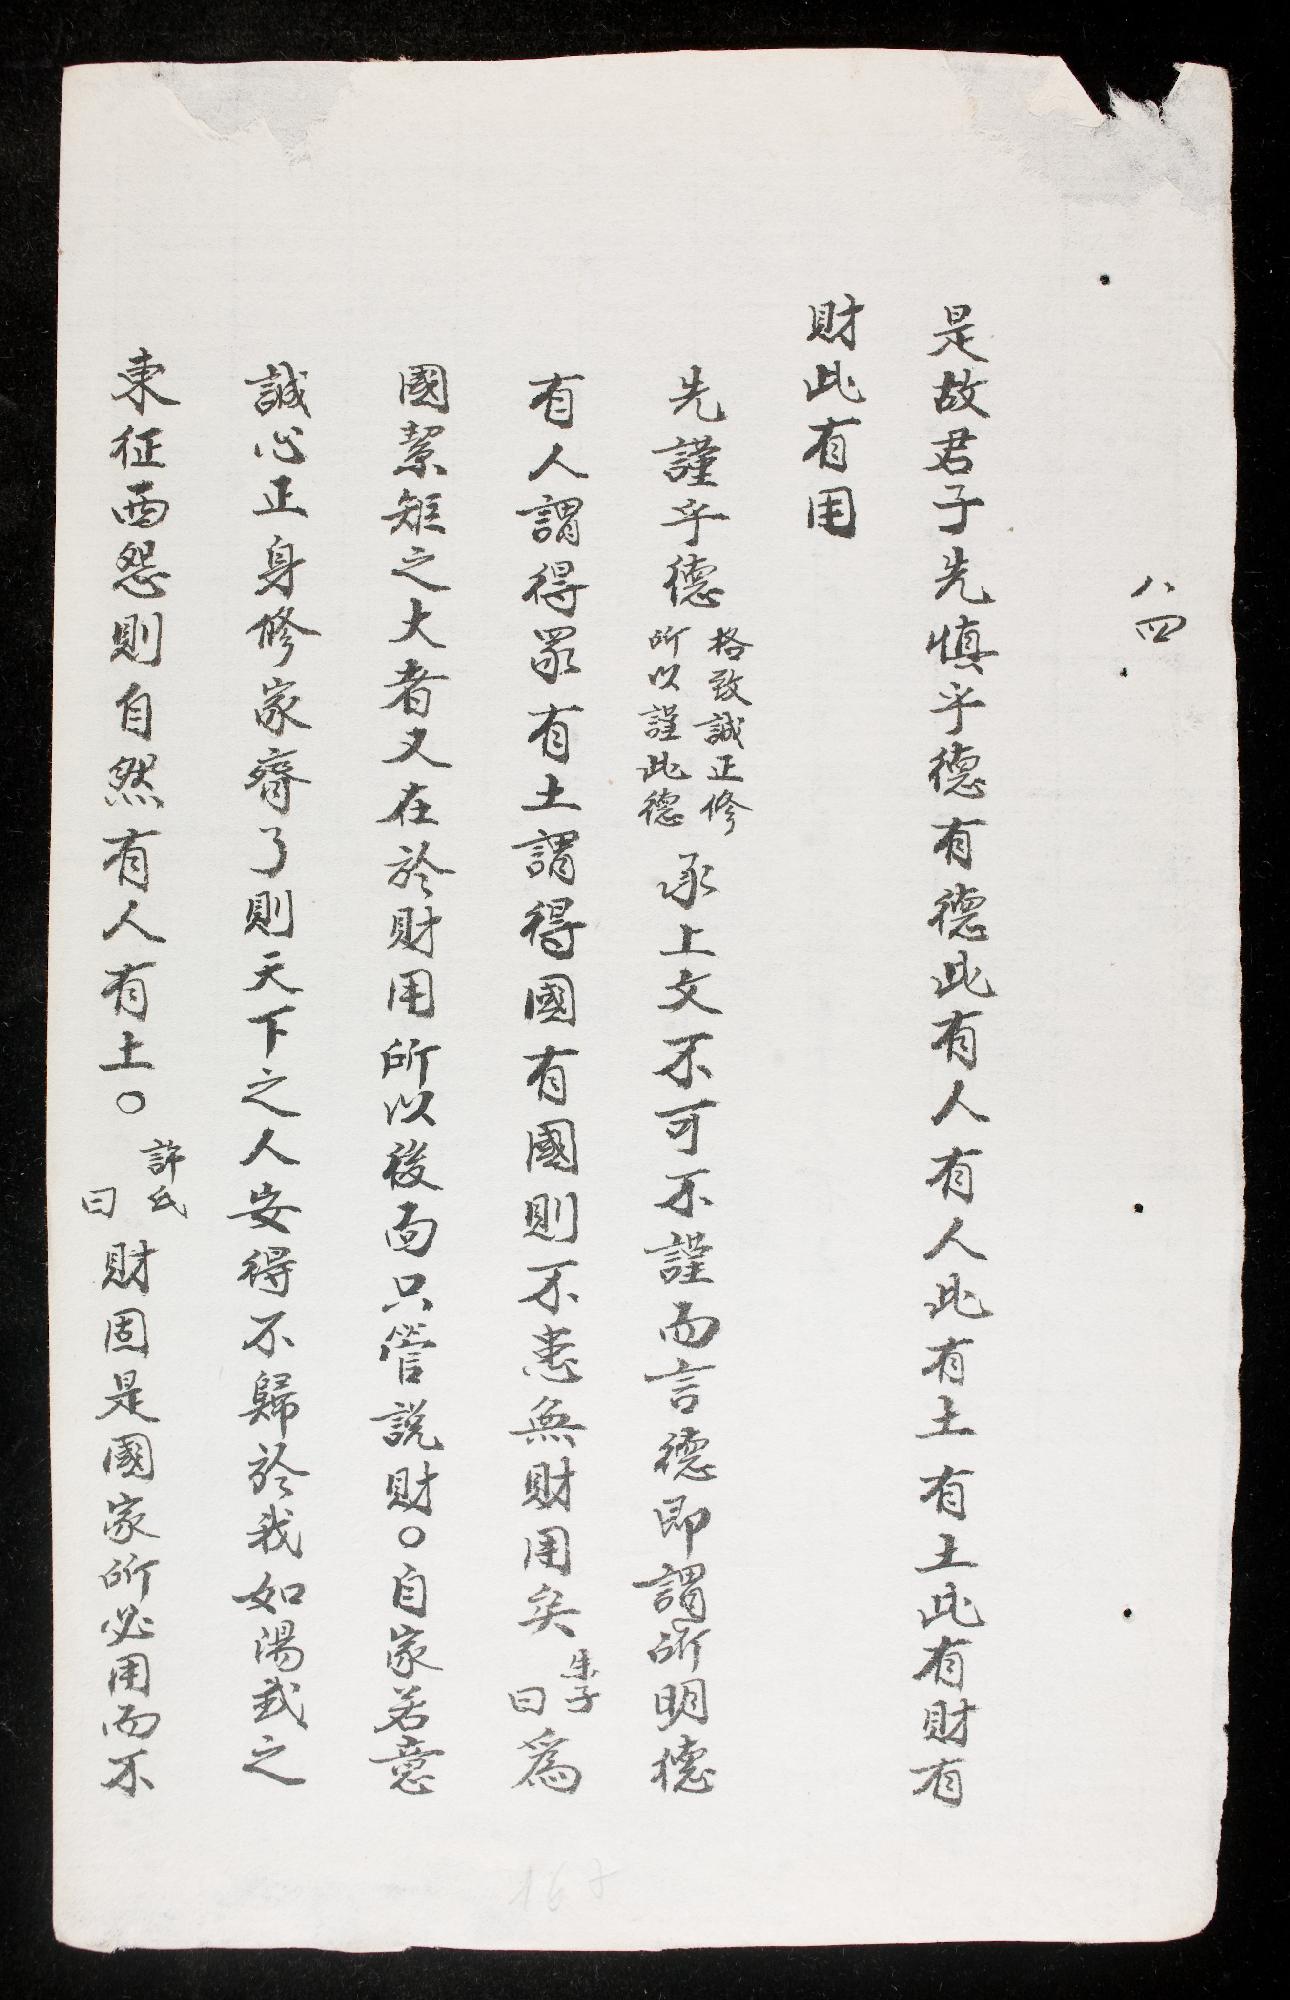 八四
是故君子先慎乎德有德此有人有人此有土有土此有財有
財此有用
先謹乎德格致誠正修所以謹此德承上文不可不謹而言德即謂所明德
有人謂得眾有土謂得國有國則不患無財用矣朱子曰爲
國絜矩之大者又在於財用所以後面只管説財○自家若意
誠心正身修家齊了則天下之人安得不歸於我如湯武之
東征西怨則自然有人有土○許氏曰財固是國家所必用而不